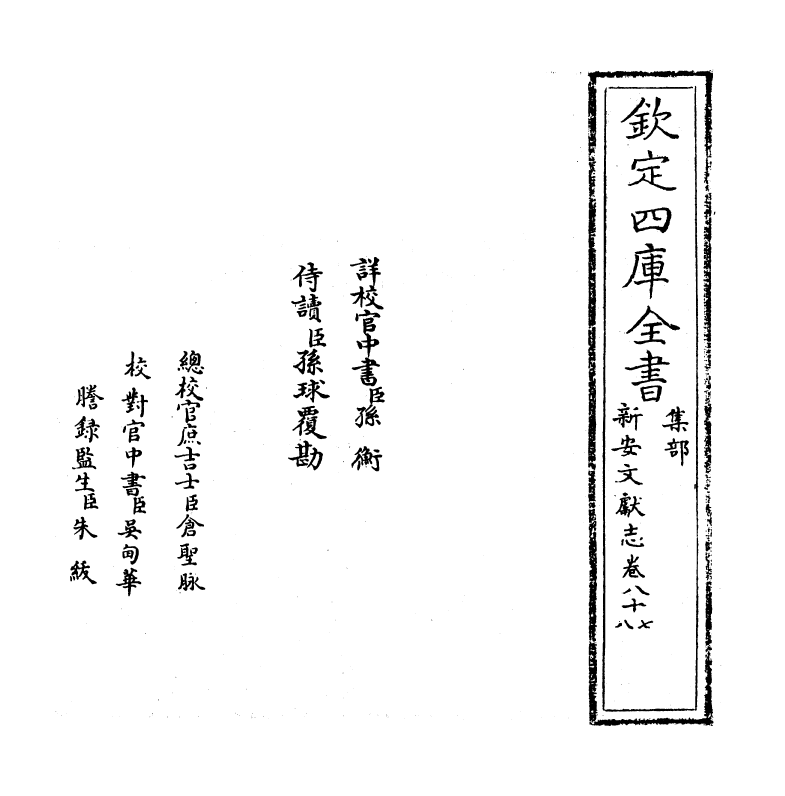 欽定四庫全書
集部
新安文獻志卷八十七八
詳校官中書臣孫衡
侍讀臣孫球覆勘
總校官庶吉士臣倉聖脉
校對官中書臣吳甸華
謄録監生臣朱紱